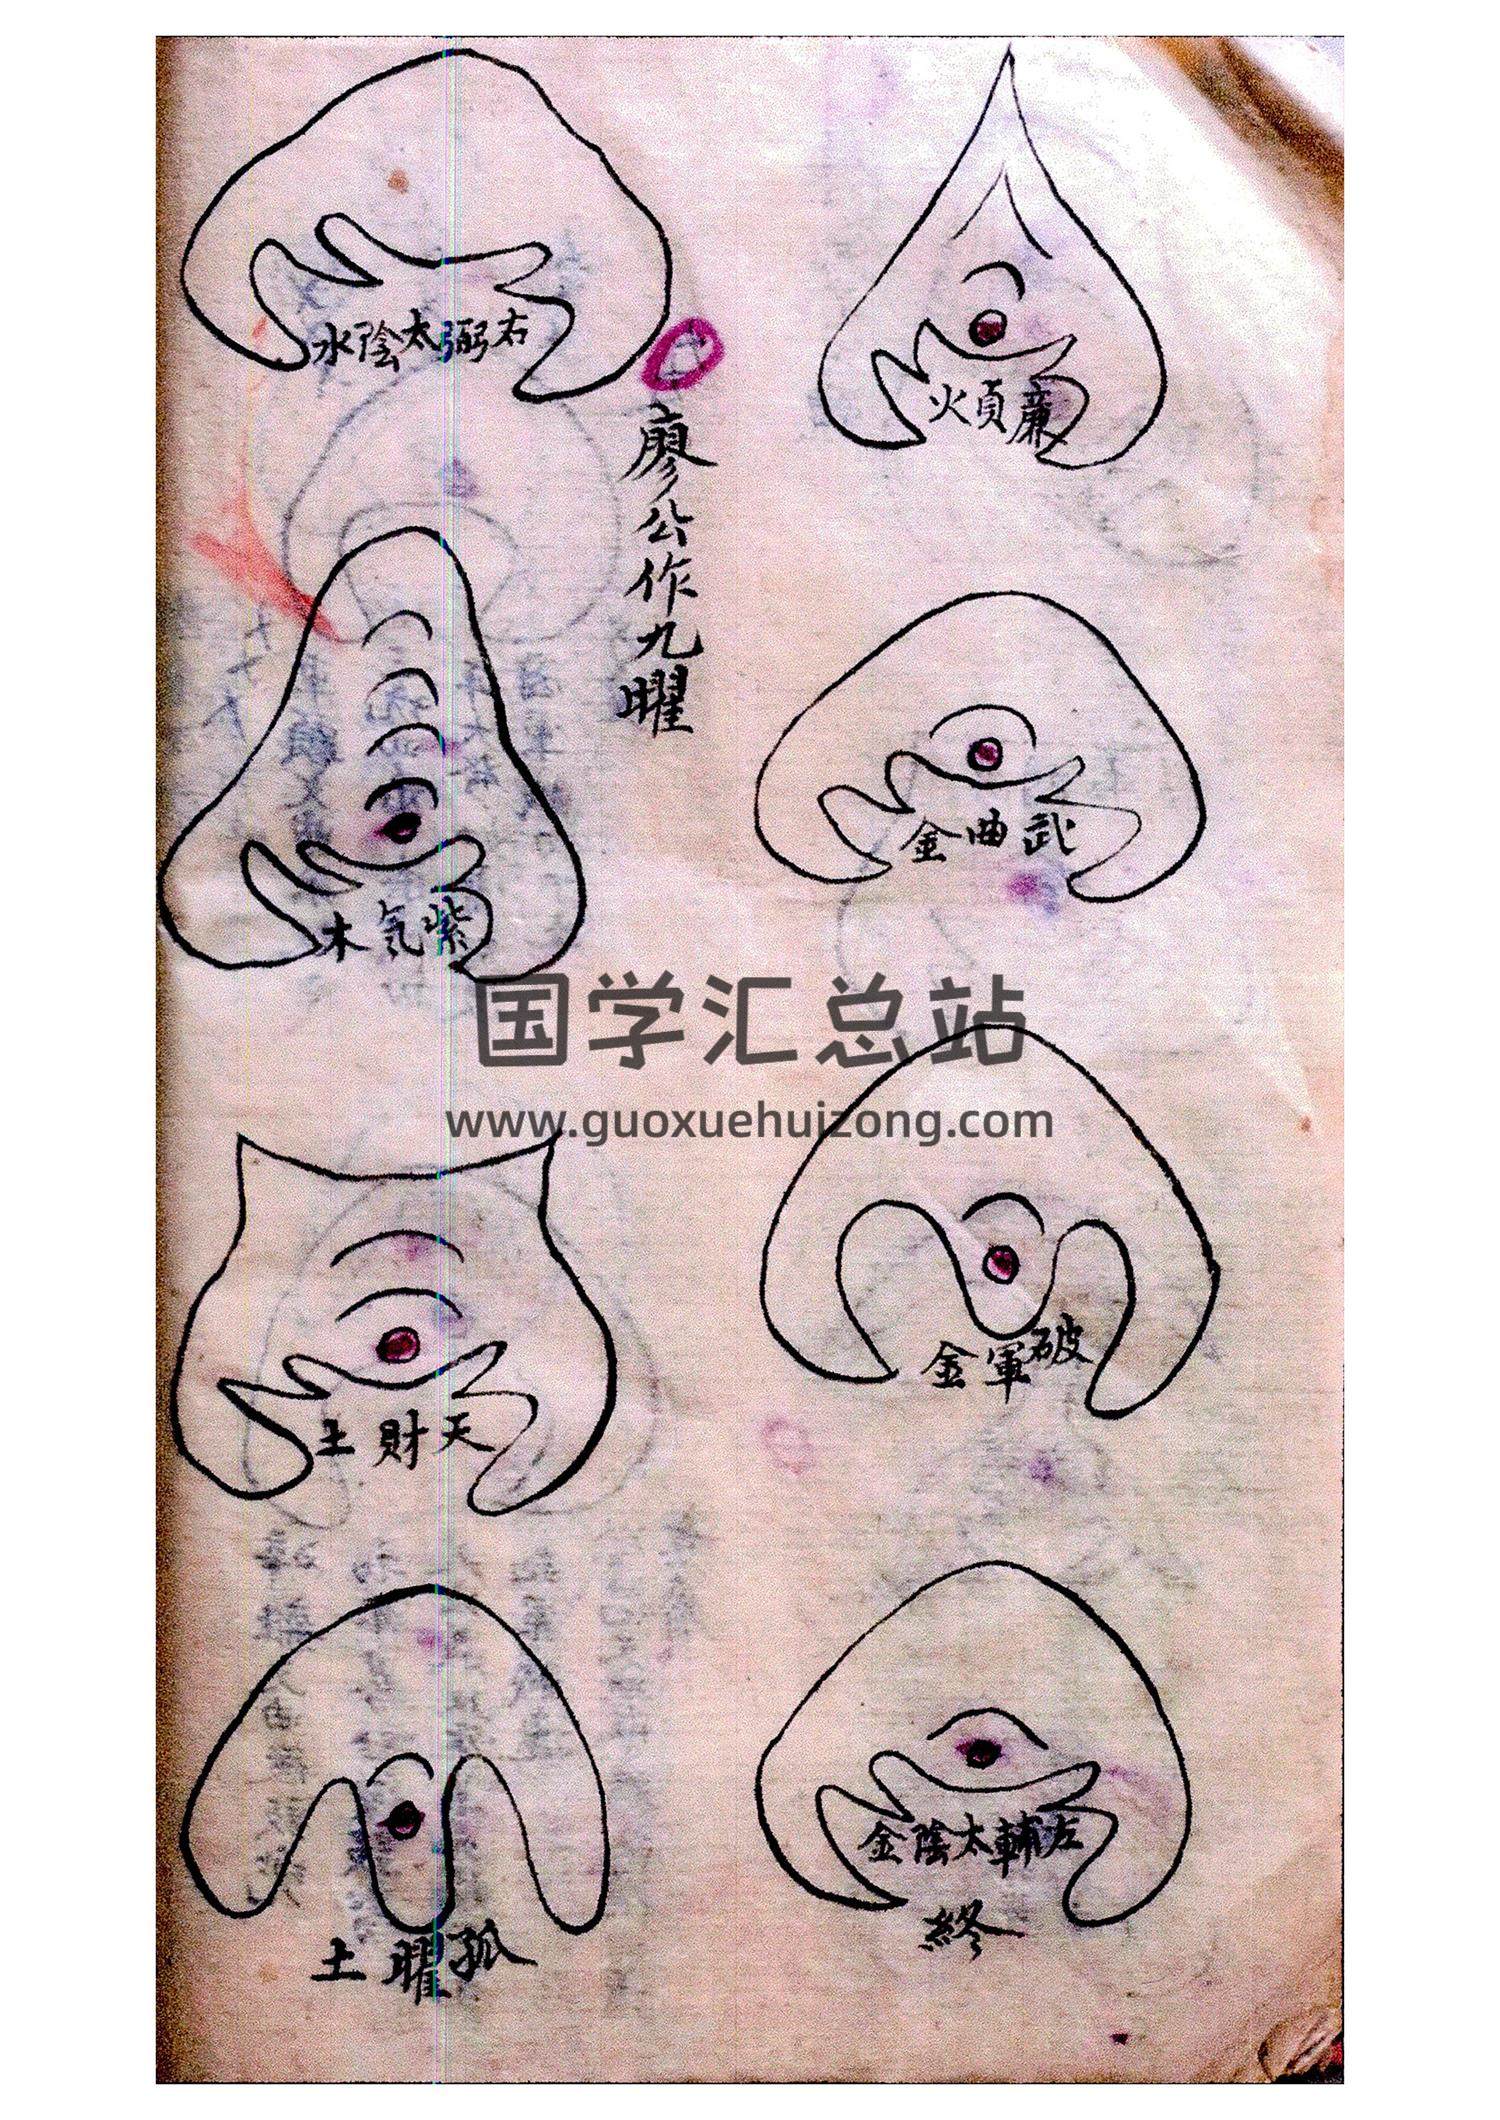 廉貞火
武曲金
破軍金
左輔太陰金
終
右弼太陰水
廖公作九曜
紫氣木
天財土
孤曜土
国学汇总站
www.guoxuehuizong.com